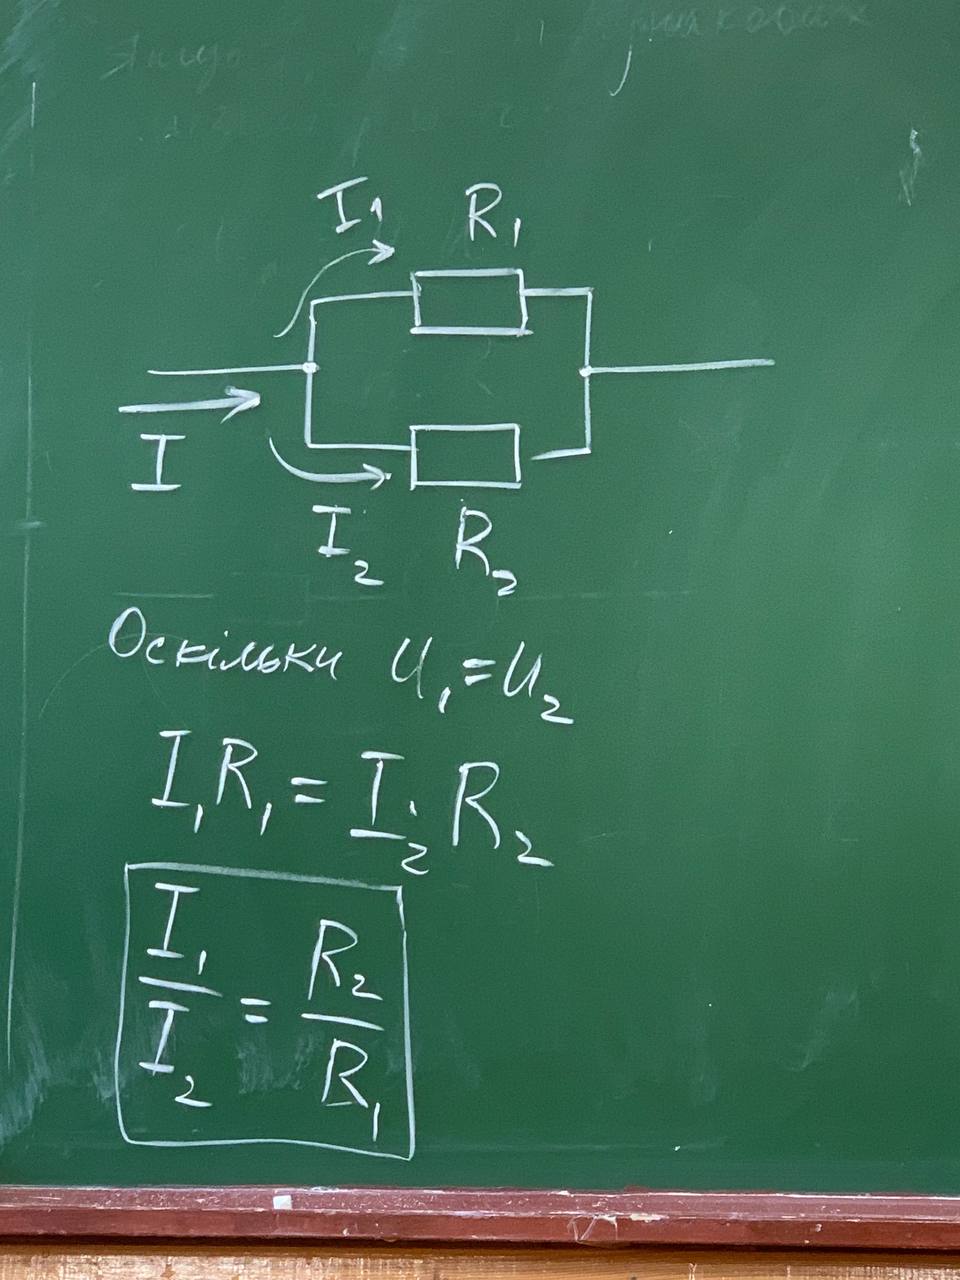 I₁ R₁
I
I₂ R₂
Оскільки U₁=U₂
I₁R₁ = I₂ R₂
I₁/I₂ = R₂/R₁